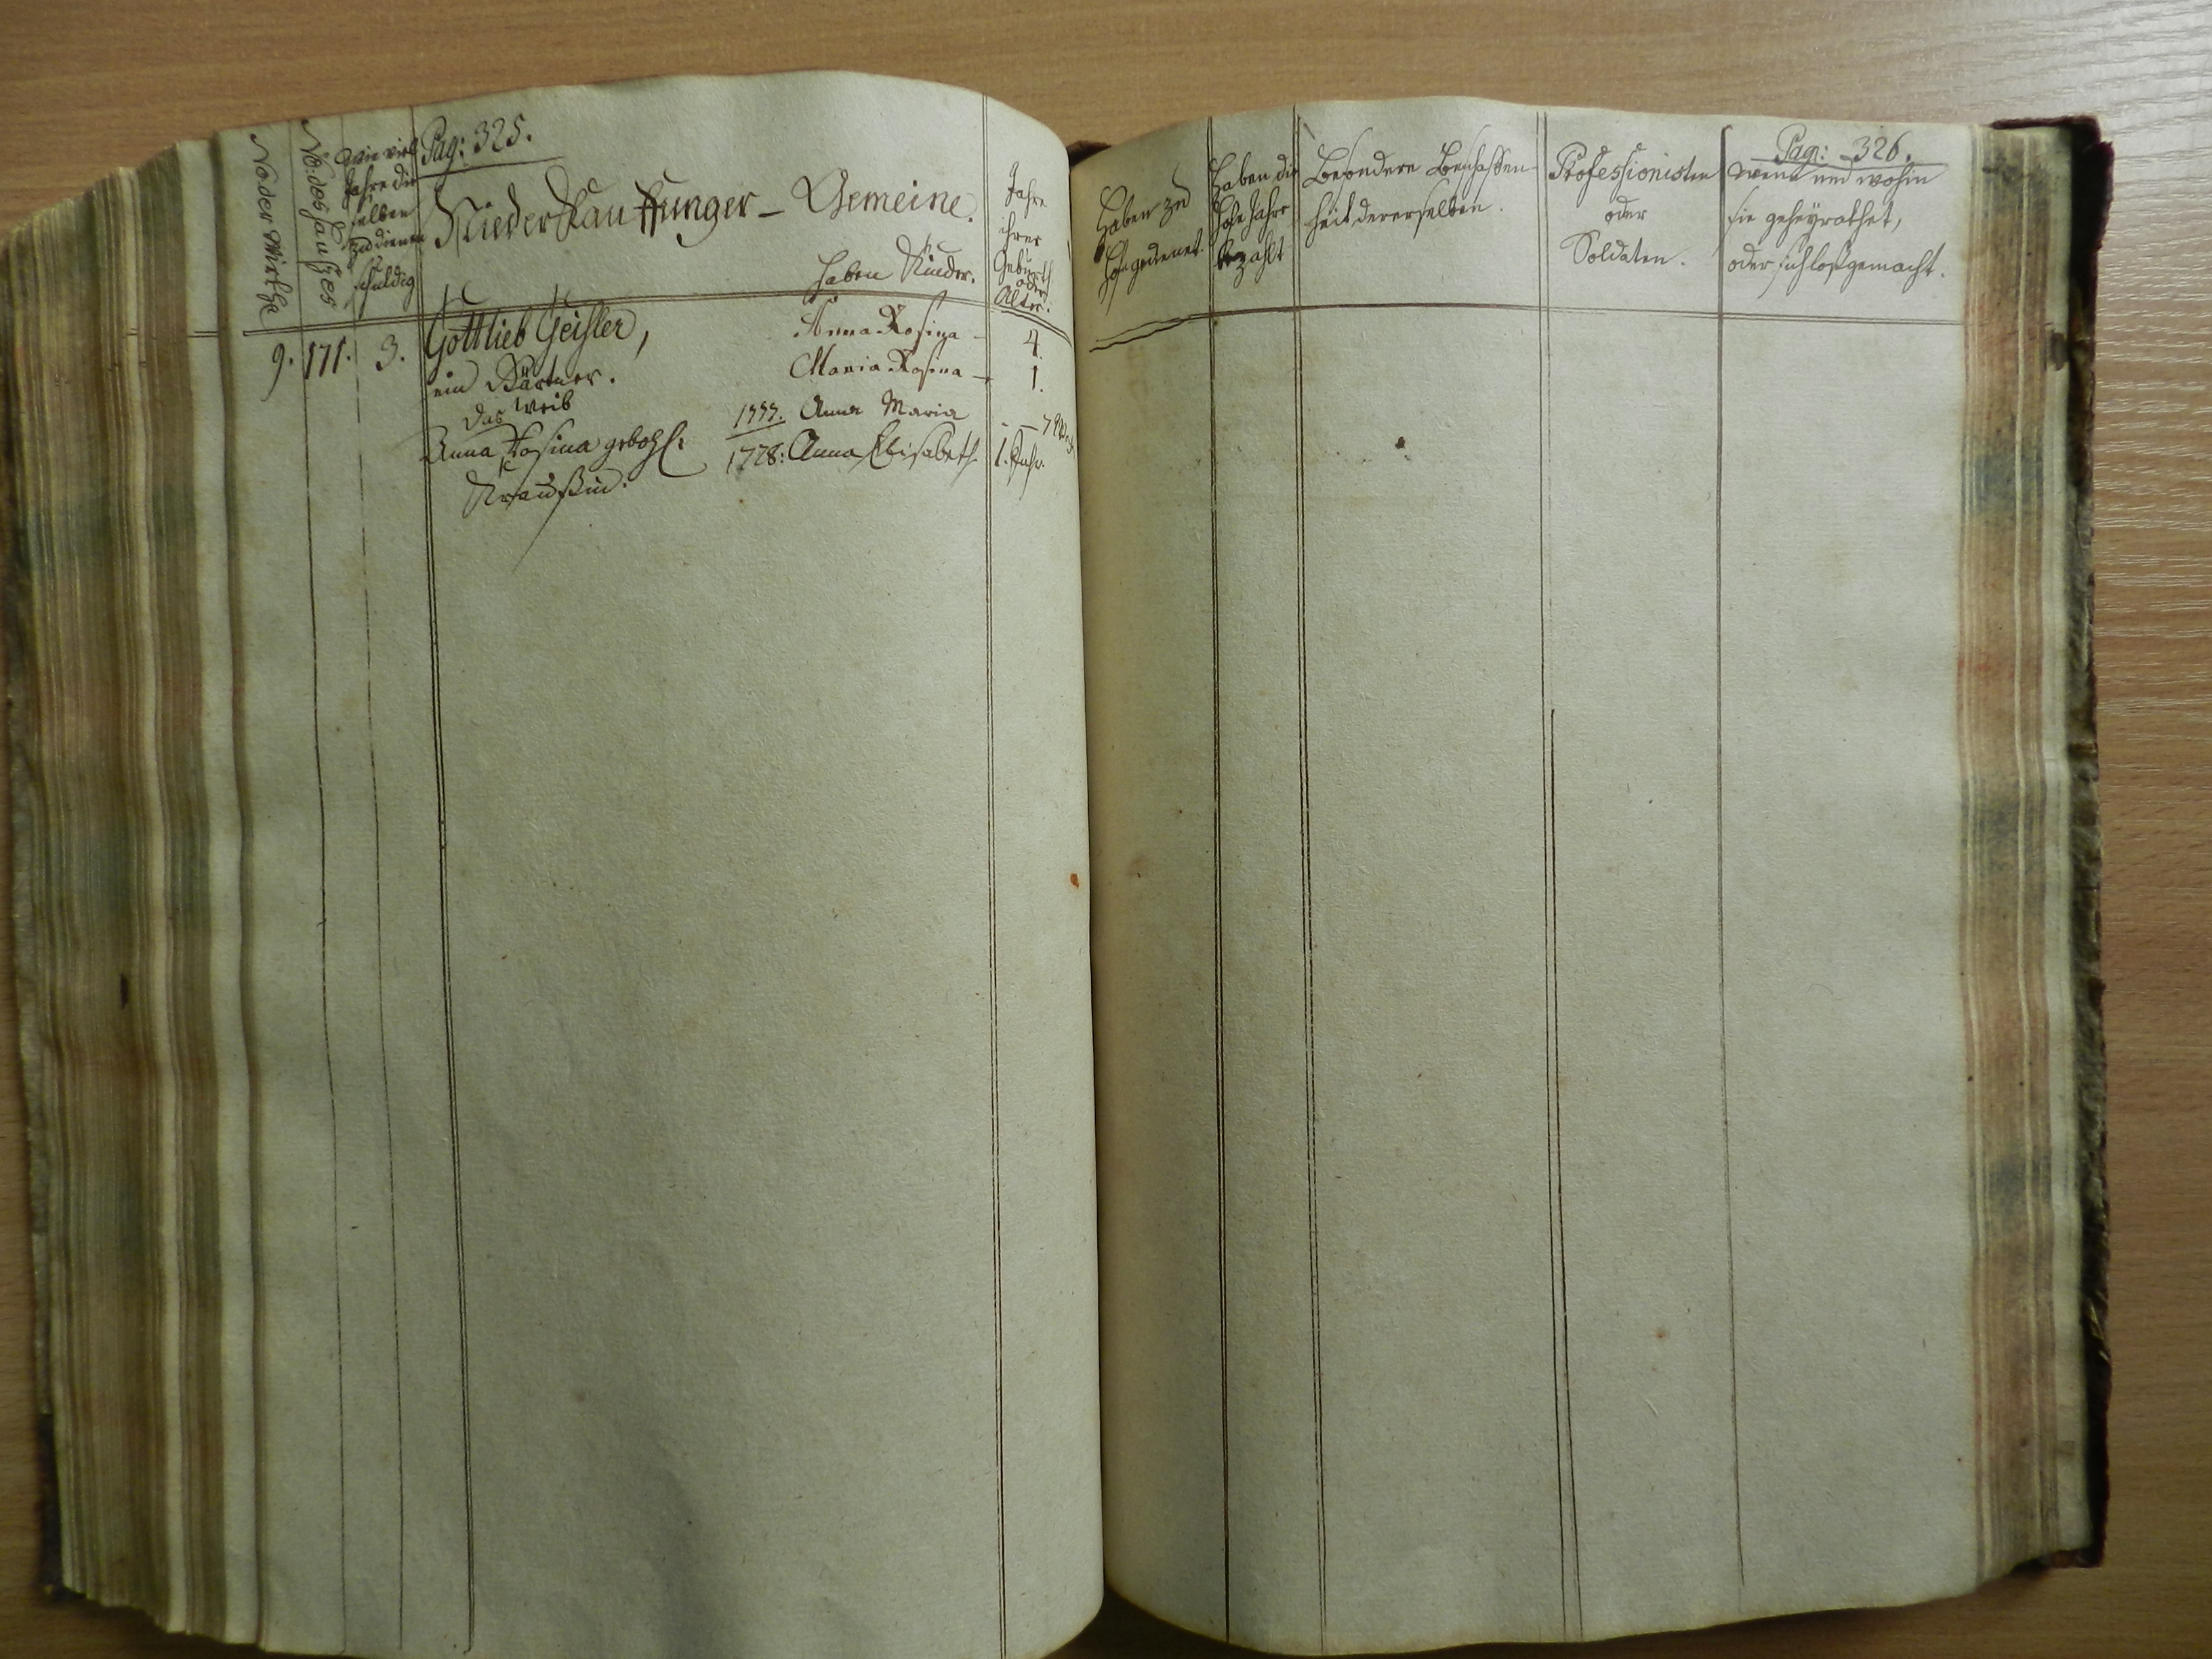 Pag: 325.
No: der Wirthe
No: des Haußes
Wie viel
Jahre die
selben
zu dienen
schuldig
Nieder Kauffunger – Gemeine.
haben Kinder.
Jahre
ihrer
Geburth
oder
Alter.
9. 171. 3. Gottlieb Geisler,
ein Gärtner.
das Weib
Anna Rosina gebohr:
Kraußin.
Anna Rosina – 4.
Maria Rosina – 1.
1777. Anna Maria
1778: Anna Elisabeth 1. Jahr.
Pag: 326.
Haben zu
Hofe gedienet.
Haben die
Hofe Jahre
bezahlt
Besondere Beschaffen-
heit dererselben.
Professionisten
oder
Soldaten.
Wenn und wohin
sie geheyrathet,
oder sich loßgemacht.